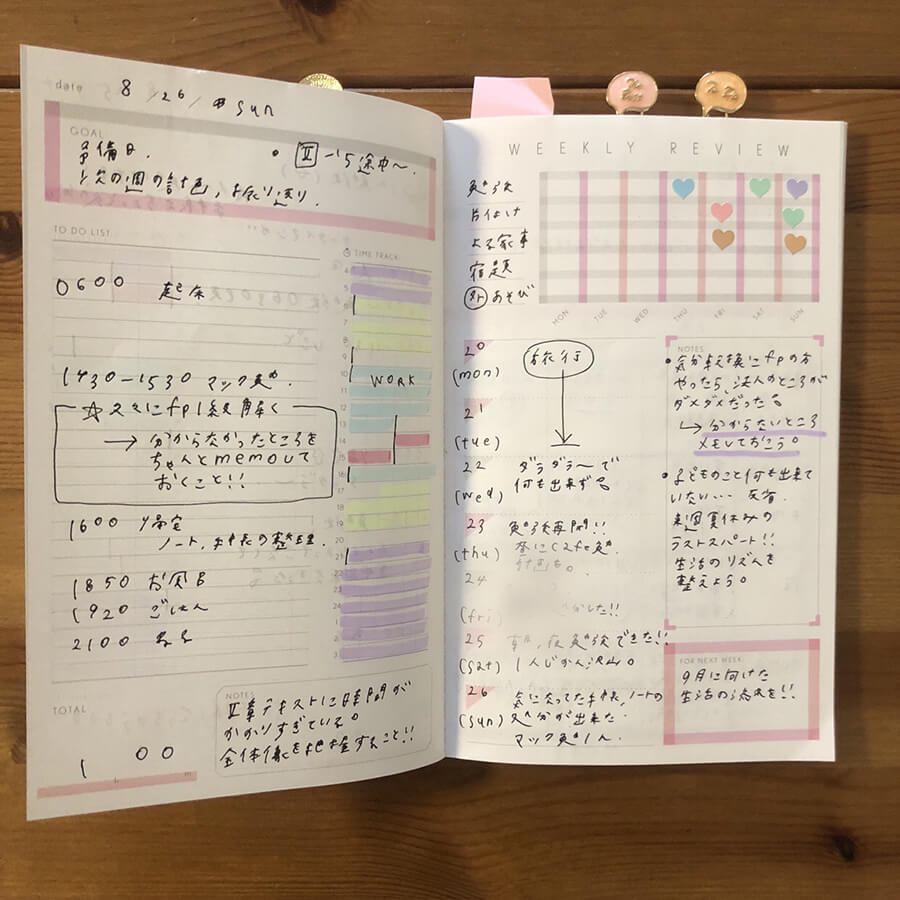 date 8/26/ sun
GOAL
予備日. • Ⅱ-15途中〜.
次の週の計画, お礼り返り.
TO DO LIST
TIME TRACK
4
5
6
7
8
9
10
WORK
11
12
13
14
15
16
17
18
19
20
21
22
23
24
1
2
3
0600 起床
1430-1530 マック勉.
☆ スタにfp1級解く
→ 分からなかったところを
ちゃんとmemoして
おくこと!!
1600 帰宅
ノート, 手帳の整理.
1850 お風呂
1920 ごはん
2100
TOTAL
1 00
h.
NOTES
Ⅱ章テキストに時間が
かかりすぎている。
全体像を把握すること!!
WEEKLY REVIEW
勉強
片付け
よる家事
宿題
外あそび
MON TUE WED THU FRI SAT SUN
20
(mon)
旅行
21
(tue)
22
(wed)
ダラダラ〜で
何も出来ず。
23
(thu)
勉強再開!!
計画も。
24
(fri)
した!!
25
(sat)
朝, 夜勉強できた!!
1人じかん沢山。
26
(sun)
気になってた手帳, ノートの
処分が出来た.
マック勉1h.
NOTES
• 気分転換にfpの方
やったら、法人のところが
ダメダメだった。
↳ 分からないところ
メモしておこう。
• 子どものこと何も出来て
いない… 反省.
来週夏休みの
ラストスパート!!
生活のリズムを
整えよう。
FOR NEXT WEEK
9月に向けた
生活の流れを!!